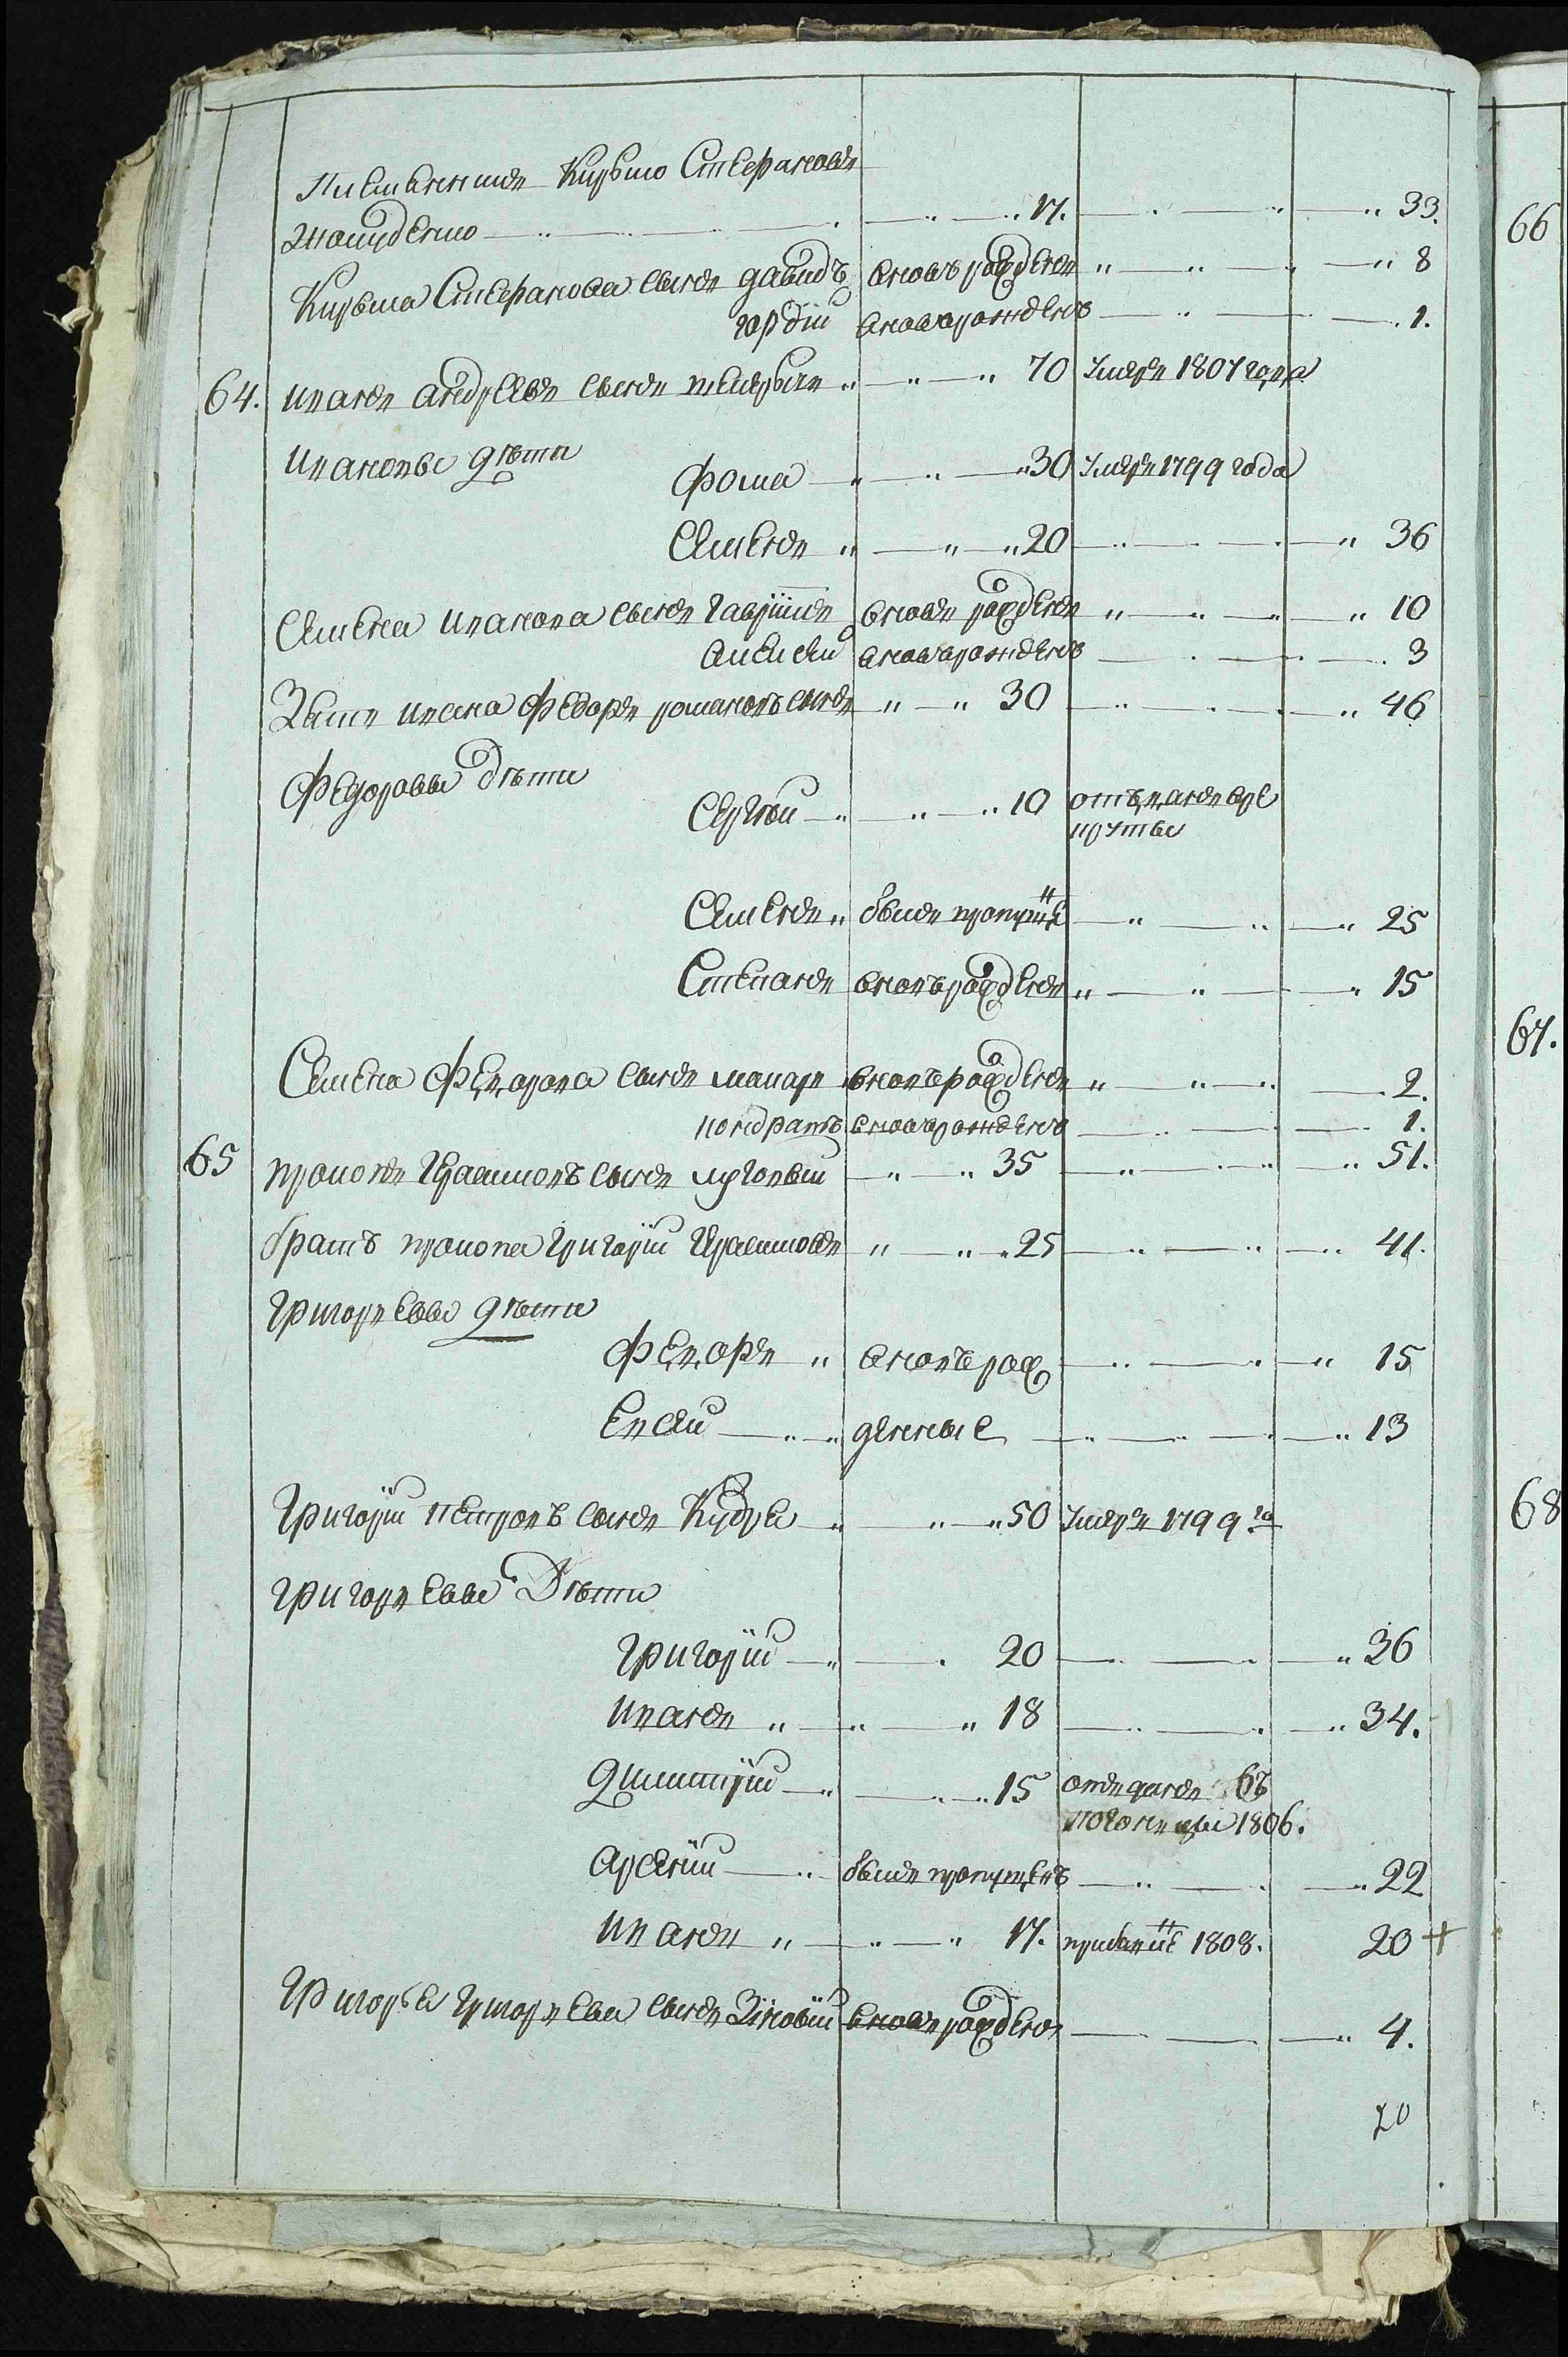 Племянникъ Кузьмо Стефановъ
17. 33.
Кузьма Стефанова сынъ давидъ вновь рожденъ 8
гордiй вновь рожденъ 1.
64. иванъ андреевъ сынъ 70 умеръ 1807 года
ивановы дѣти
фома 30 умеръ 1799 года
Семенъ 20 36
Семена ивана сынъ гаврiилъ вновь рожденъ 10
алексей вновь рожденъ 3
Зять ивана федоръ романовъ сынъ 30 46
федоровы дѣти
Сергѣй 10 отъданъ врѣ
круты
Семенъ былъ пропущ 25
Степанъ вновь рожденъ 15
Семена федорова сынъ макаръ вновь рожденъ 2.
кондратъ вновь рожденъ 1.
65 прокопъ герасимовъ сынъ луговый 35 51.
братъ прокопа григорiй герасимовъ 25 41.
григорьевы дѣти
федоръ вновь рож 15
евсей денные 13
григорiй петровъ сынъ Кудря 50 умеръ 1799 го
григорьевы Дѣти
григорiй 20 36
иванъ 18 34.
дмитрiй 15 отъданъ въ
1806.
арсенiй былъ пропущенъ 22
иванъ 17. 1808. 20 +
григорья григорьева сынъ Зiновiй вновь рожденъ 4.
20
66
67.
68